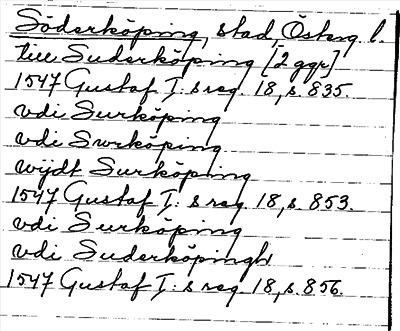 Söderköping, stad, Österg. l.
till Suderköping [2 ggr]
1547 Gustaf I:s reg. 18, s. 835.
vdi Surköping
vdi Swrköping
wijdt Surköping
1547 Gustaf I:s reg. 18, s. 853.
vdi Surköping
vdi Suderköpingh
1547 Gustaf I:s reg. 18, s. 856.